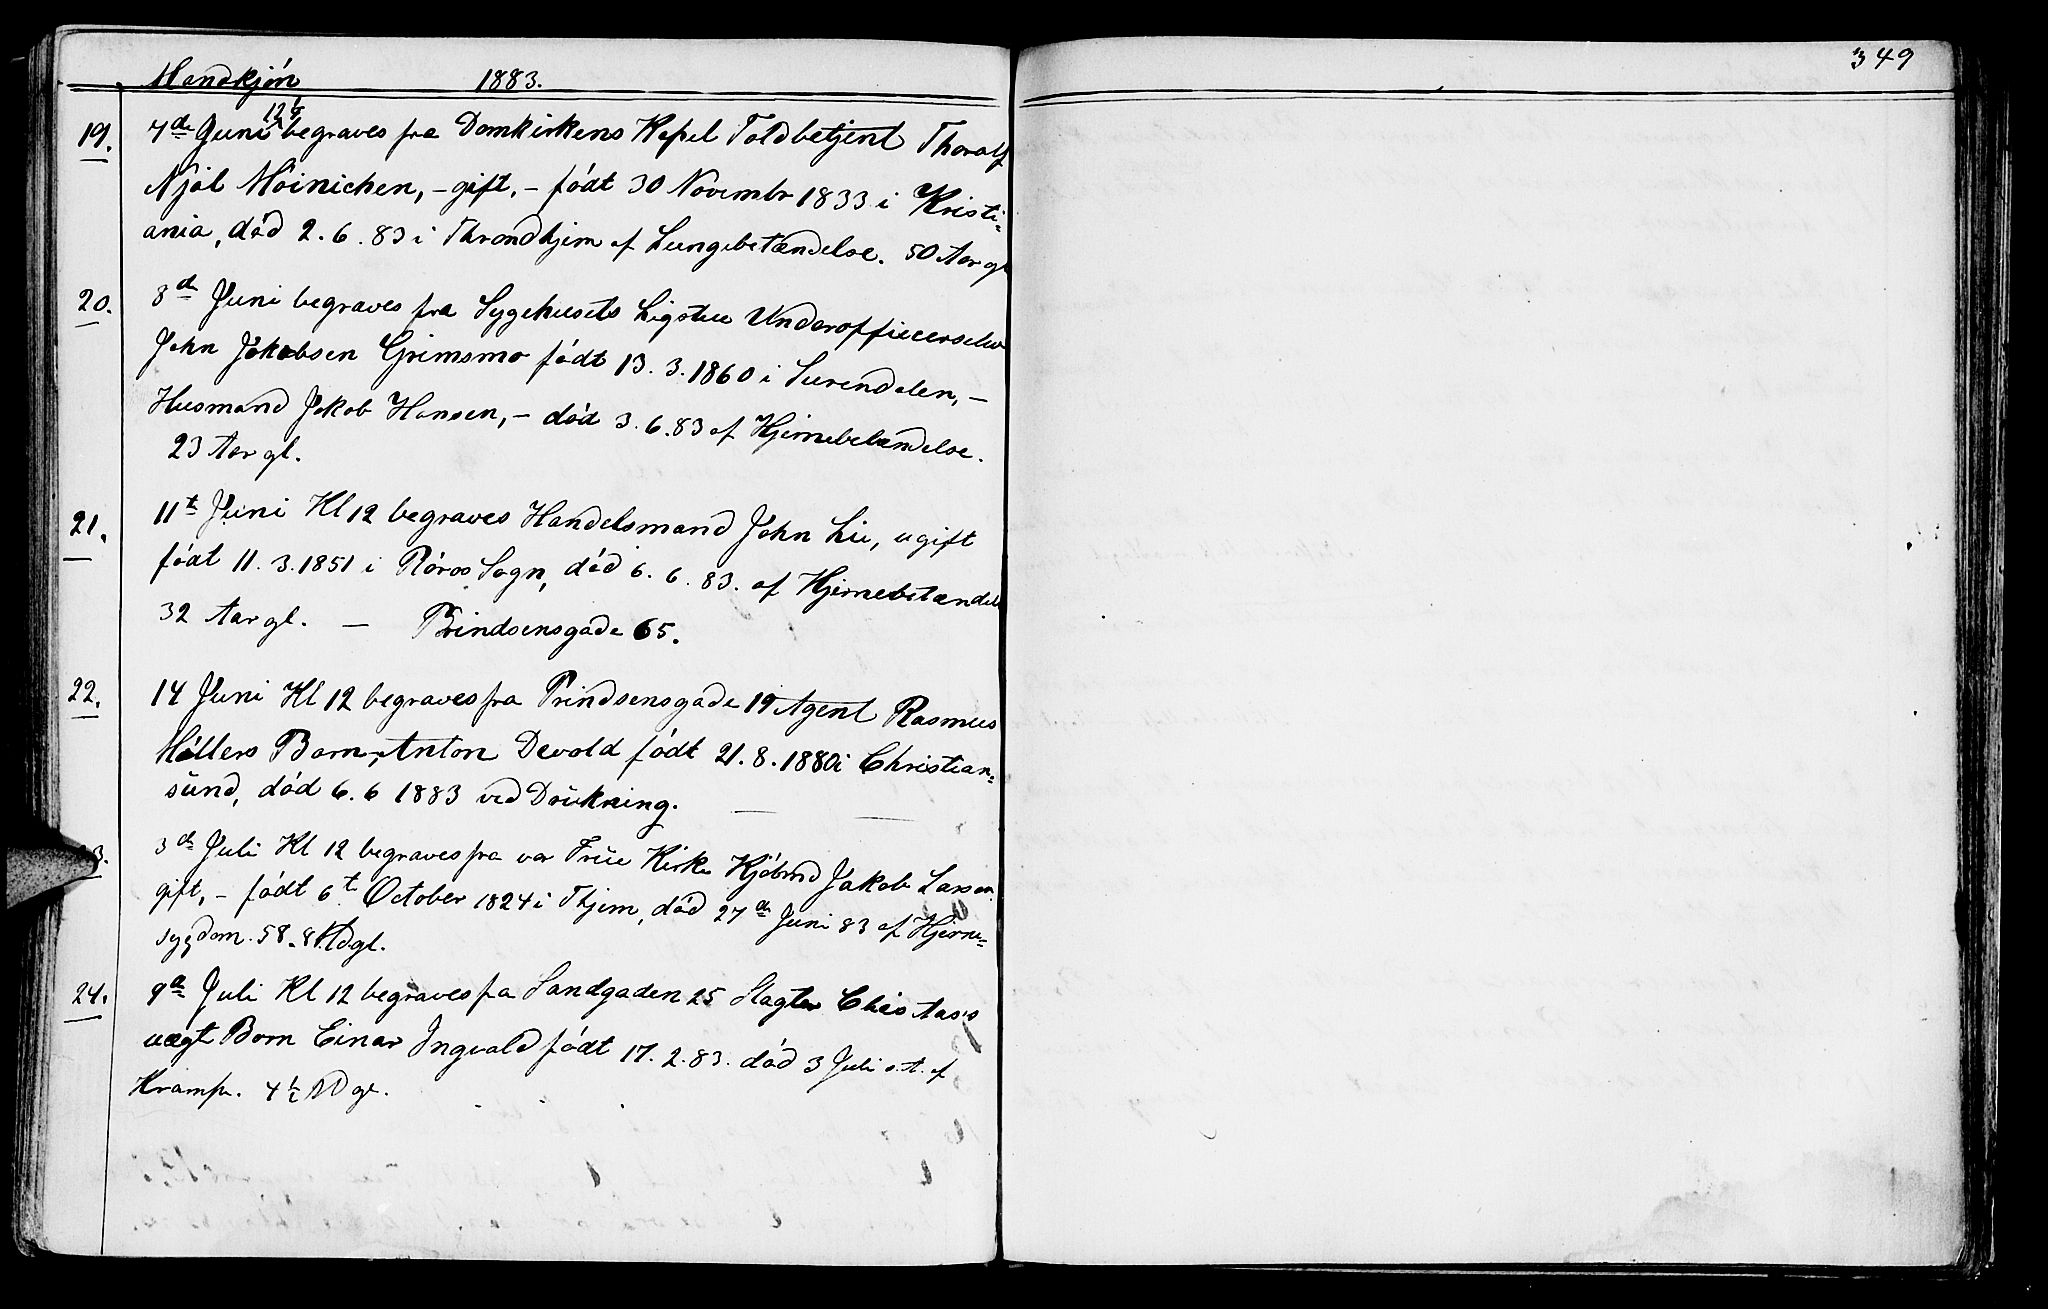 Mandkjón 1883.
349
19. 7de Juni 12½ begraves fra Domkirkens Kapel Toldbetjent Thoralf
Njál Móinichen, - gift, - fódt 30 Novembr 1833 i Kristi-
ania, dód 2.6.83 i Throndhjem af Lungebetændelse. 50 Aar gl
20. 8de Juni begraves fra Sygehusets Ligstue Underofficerselev
John Jakobsen Grimsmo fódt 13.3.1860 i Surendalen, -
Husmand Jakob Hansen, - dód 3.6.83 af Hjernebetændelse.
23 Aar gl.
21. 11t Juni Kl 12 begraves Handelsmand John Lie, ugift
fódt 11.3.1851 i Róros Sogn, dód 6.6.83. af Hjernebetændels
32 Aar gl. - Prindsensgade 65.
22. 14 Juni Kl 12 begraves fra Prindsensgade 19 Agent Rasmus
Móllers Barn, Anton Devold fódt 21.8.1880 i Christian=
sund, dód 6.6 1883 ved Drukning.
3. 3de Juli Kl 12 begraves fra vor Frue Kirke Kjóbmd Jakob Larsen
gift, - fódt 6t October 1824 i Thjem, dód 27de Juni 83 af Hjerne=
sygdom. 58-8 Md gl.
24. 9de Juli Kl 12 begraves fra Sandgaden 25 Slagter
Barn Einar Ingvald fódt 17.2.83. dód 3 Juli s.A. af
Krampe. 4½ Md gl.